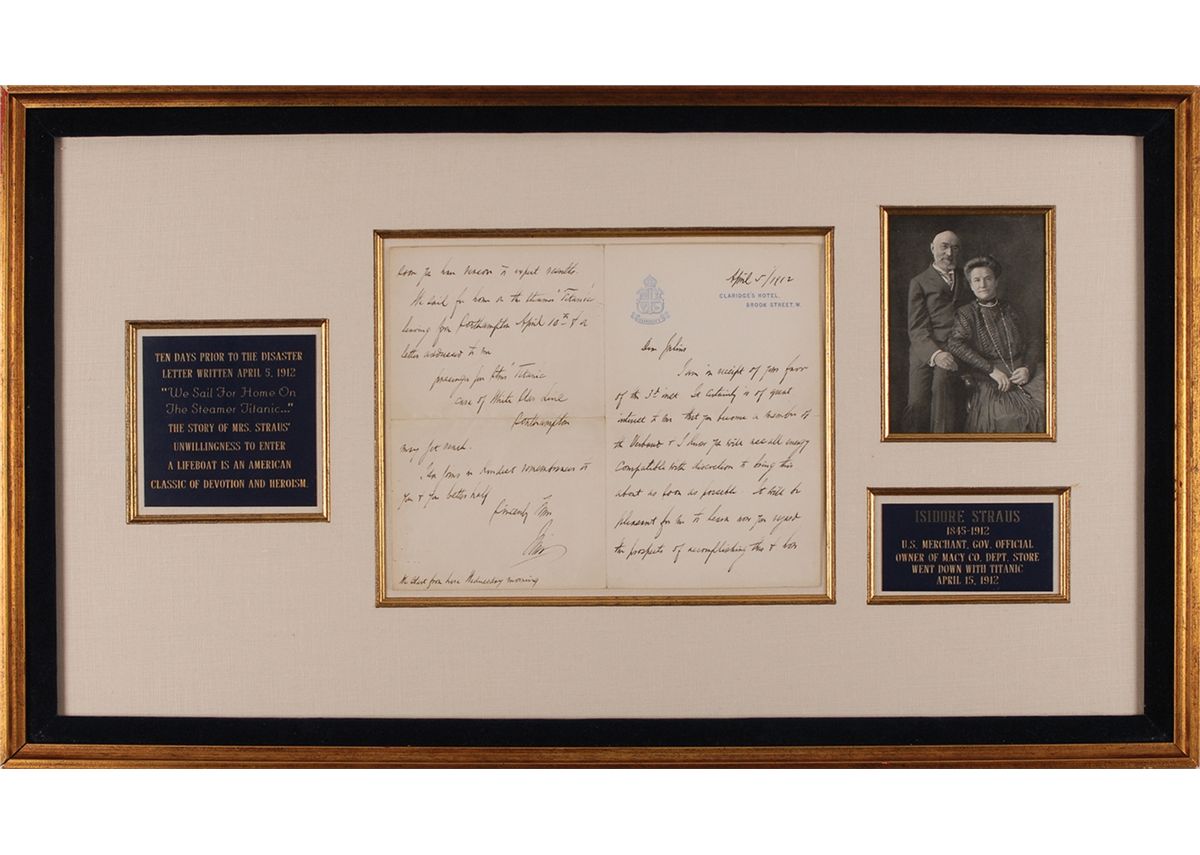 TEN DAYS PRIOR TO THE DISASTER
LETTER WRITTEN APRIL 5, 1912
"We Sail For Home On
The Steamer Titanic..."
THE STORY OF MRS. STRAUS'
UNWILLINGNESS TO ENTER
A LIFEBOAT IS AN AMERICAN
CLASSIC OF DEVOTION AND HEROISM.
soon you have reason to expect results.
We sail for home on the steamer "Titanic"
leaving from Southampton April 10th & a
letter addressed to me
passenger per Stmr Titanic
care of White Star Line
Southampton
may get me.
joins in kindest remembrances to
you & your better half
Sincerely Yours
We start from here Wednesday morning
April 5/1912
CLARIDGE'S HOTEL,
BROOK STREET, W.
CLARIDGE'S
Dear Julius
I am in receipt of your favor
of the 3d inst. It certainly is of great
interest to me that you become a member of
the & I know you will use all energy
compatible with discretion to bring this
about as soon as possible. It will be
pleasant for me to learn how you regard
the prospects of accomplishing this & how
ISIDORE STRAUS
1845-1912
U.S. MERCHANT, GOV. OFFICIAL
OWNER OF MACY CO. DEPT. STORE
WENT DOWN WITH TITANIC
APRIL 15, 1912